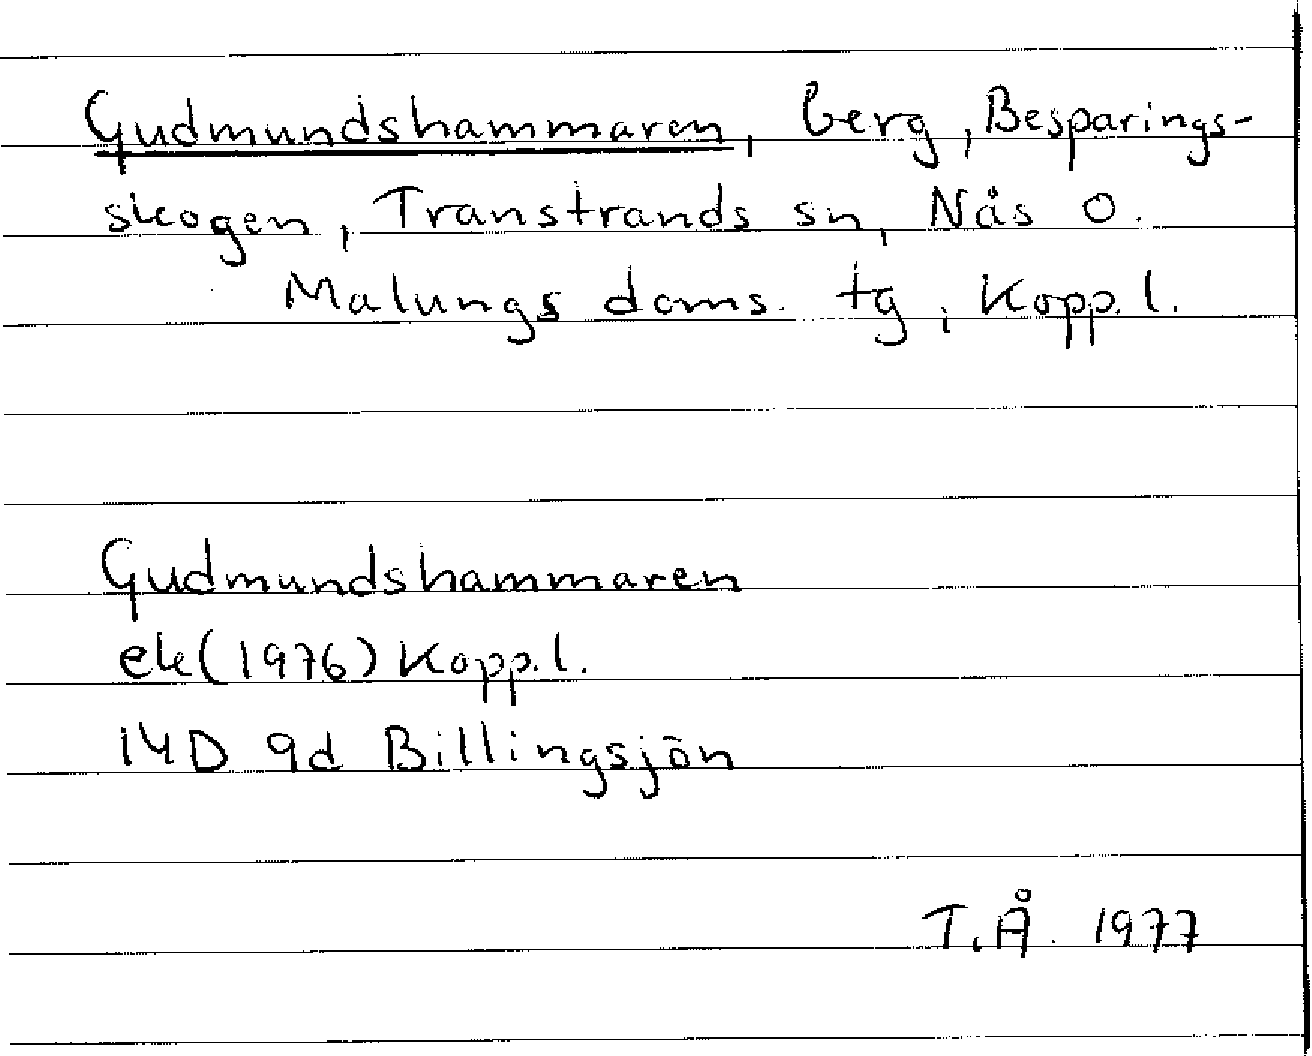 Gudmundshammaren, berg, Besparings-
skogen, Transtrands sn, Nås o.
Malungs doms. tg, Kopp. l.
Gudmundshammaren
ek (1976) Kopp. l.
14D 9d Billingsjön
T.Å. 1977